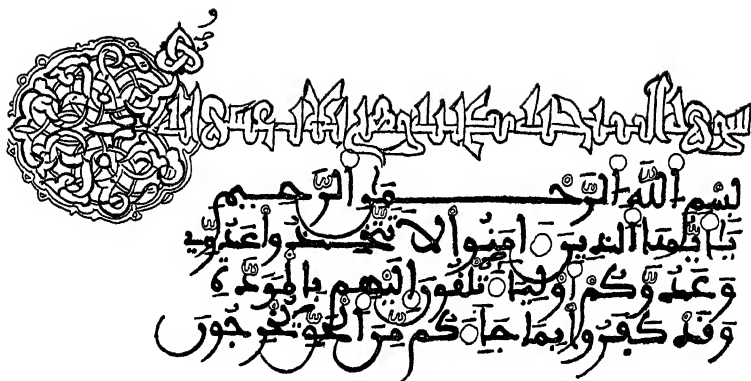 سورة
بسم الله الرحمن الرحيم
يا أيها الذين ءامنوا لا تتخذوا عدوي
وعدوكم أولياء تلقون إليهم بالمودة
وقد كفروا بما جاءكم من الحق يخرجون